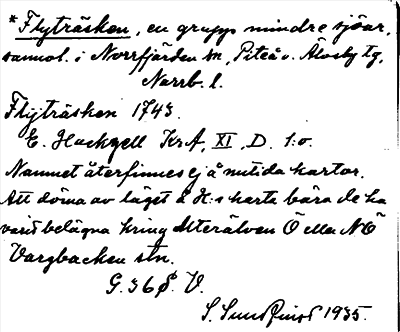 *Flyträsken, en grupp mindre sjöar,
sannol. i Norrfjärden sn, Piteå o. Älvsby tg,
Norrb. l.
Flyträsken 1743.
E. Hackzell KrA, XI, D. 1:o.
Namnet återfinnes ej å nutida kartor.
Att döma av läget å H:s karta böra de ha
varit belägna kring Alterälven Ö eller NÖ
Vargbacken stn.
G. 36 Ö. V.
S. Sundqvist 1935.